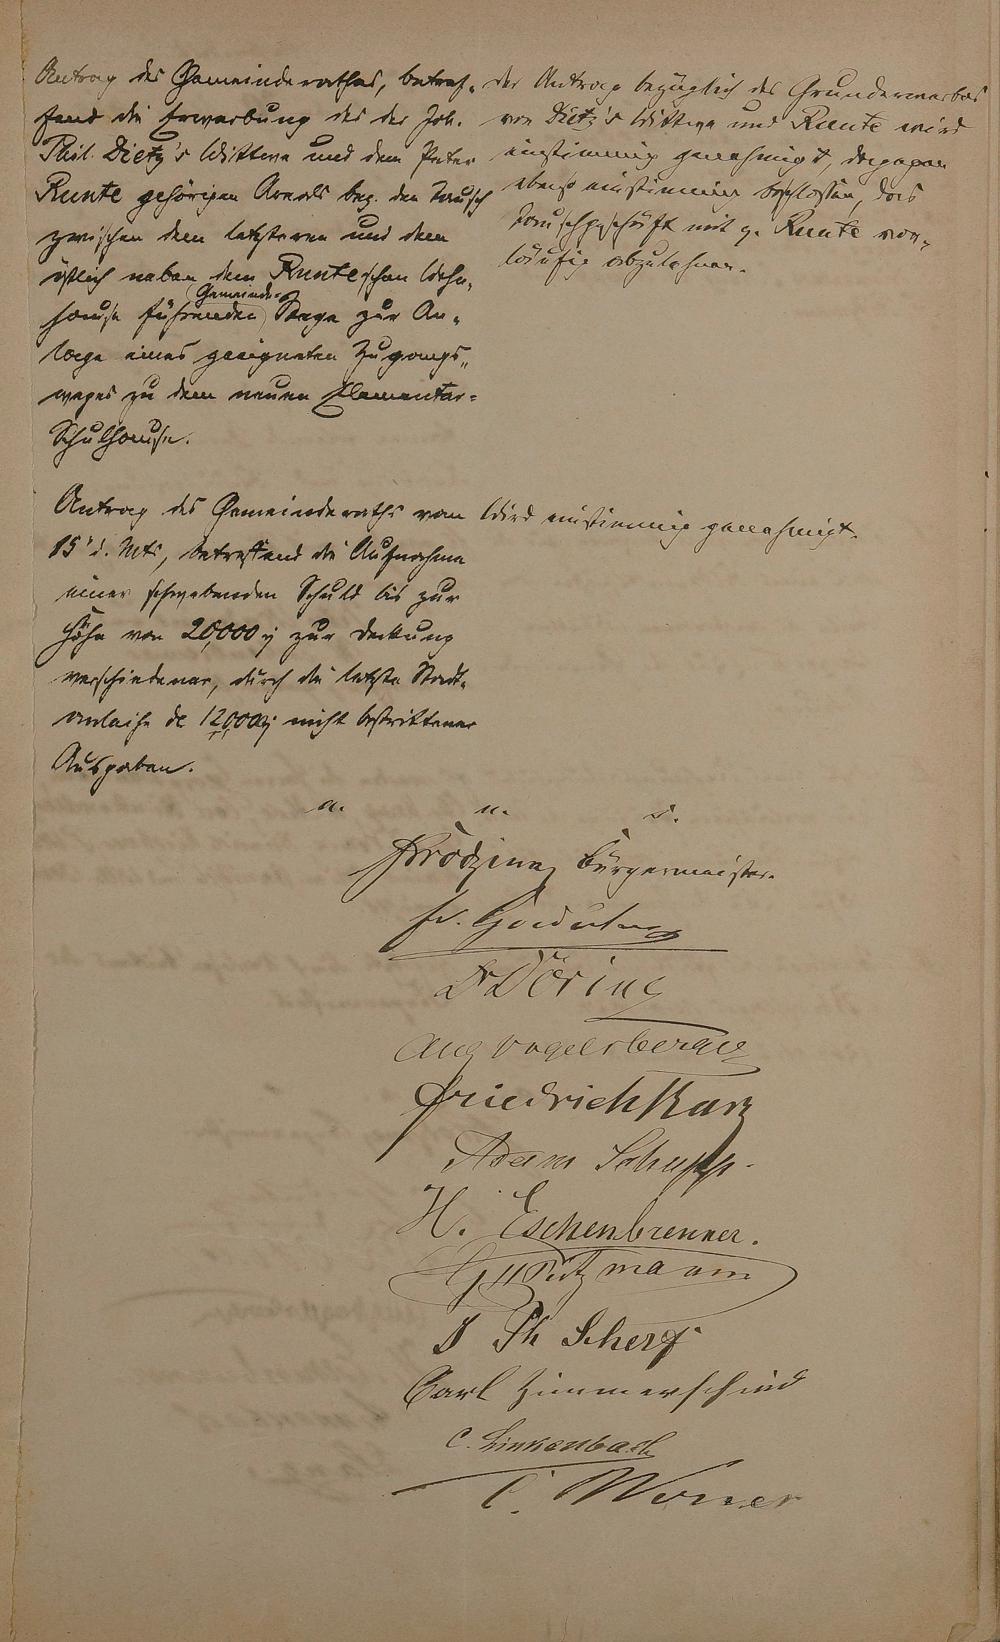 Antrag des Gemeinderathes, betref-
fend die Erwerbung des der Joh.
Phil. Dietz's Wittwe und dem Peter
Runte gehörigen Areals bez. den Tausch
zwischen dem letzteren und dem
östlich neben dem Runte'schen Wohn-
hause führenden Gemeinde-Wege zur An-
lage eines geeigneten Zugangs-
weges zu dem neuen Elementar-
Schulhause.
der Antrag bezüglich des Grunderwerbes
von Dietz's Wittwe und Runte wird
einstimmig genehmigt, dagegen
ebenso einstimmig beschlossen, das
Tauschgeschäft mit p. Runte vor-
läufig abzulehnen.
Antrag des Gemeinderaths vom
15' d. Mts, betreffend die Aufnahme
einer schwebenden Schuld bis zur
Höhe von 20,000 zur Deckung
verschiedener, durch die letzte Stadt-
anleihe de 120,000 nicht bestrittener
Ausgaben.
Wird einstimmig genehmigt.
a. u. s.
Bürgermeister.
Fr.
Dr Döring
Aug Vogelsberger
Friedrich Kurz
Adam Schupp.
H. Eschenbrenner.
J Ph Scherf
Carl Zimmerschied
C. Linkenbach
C. Werner